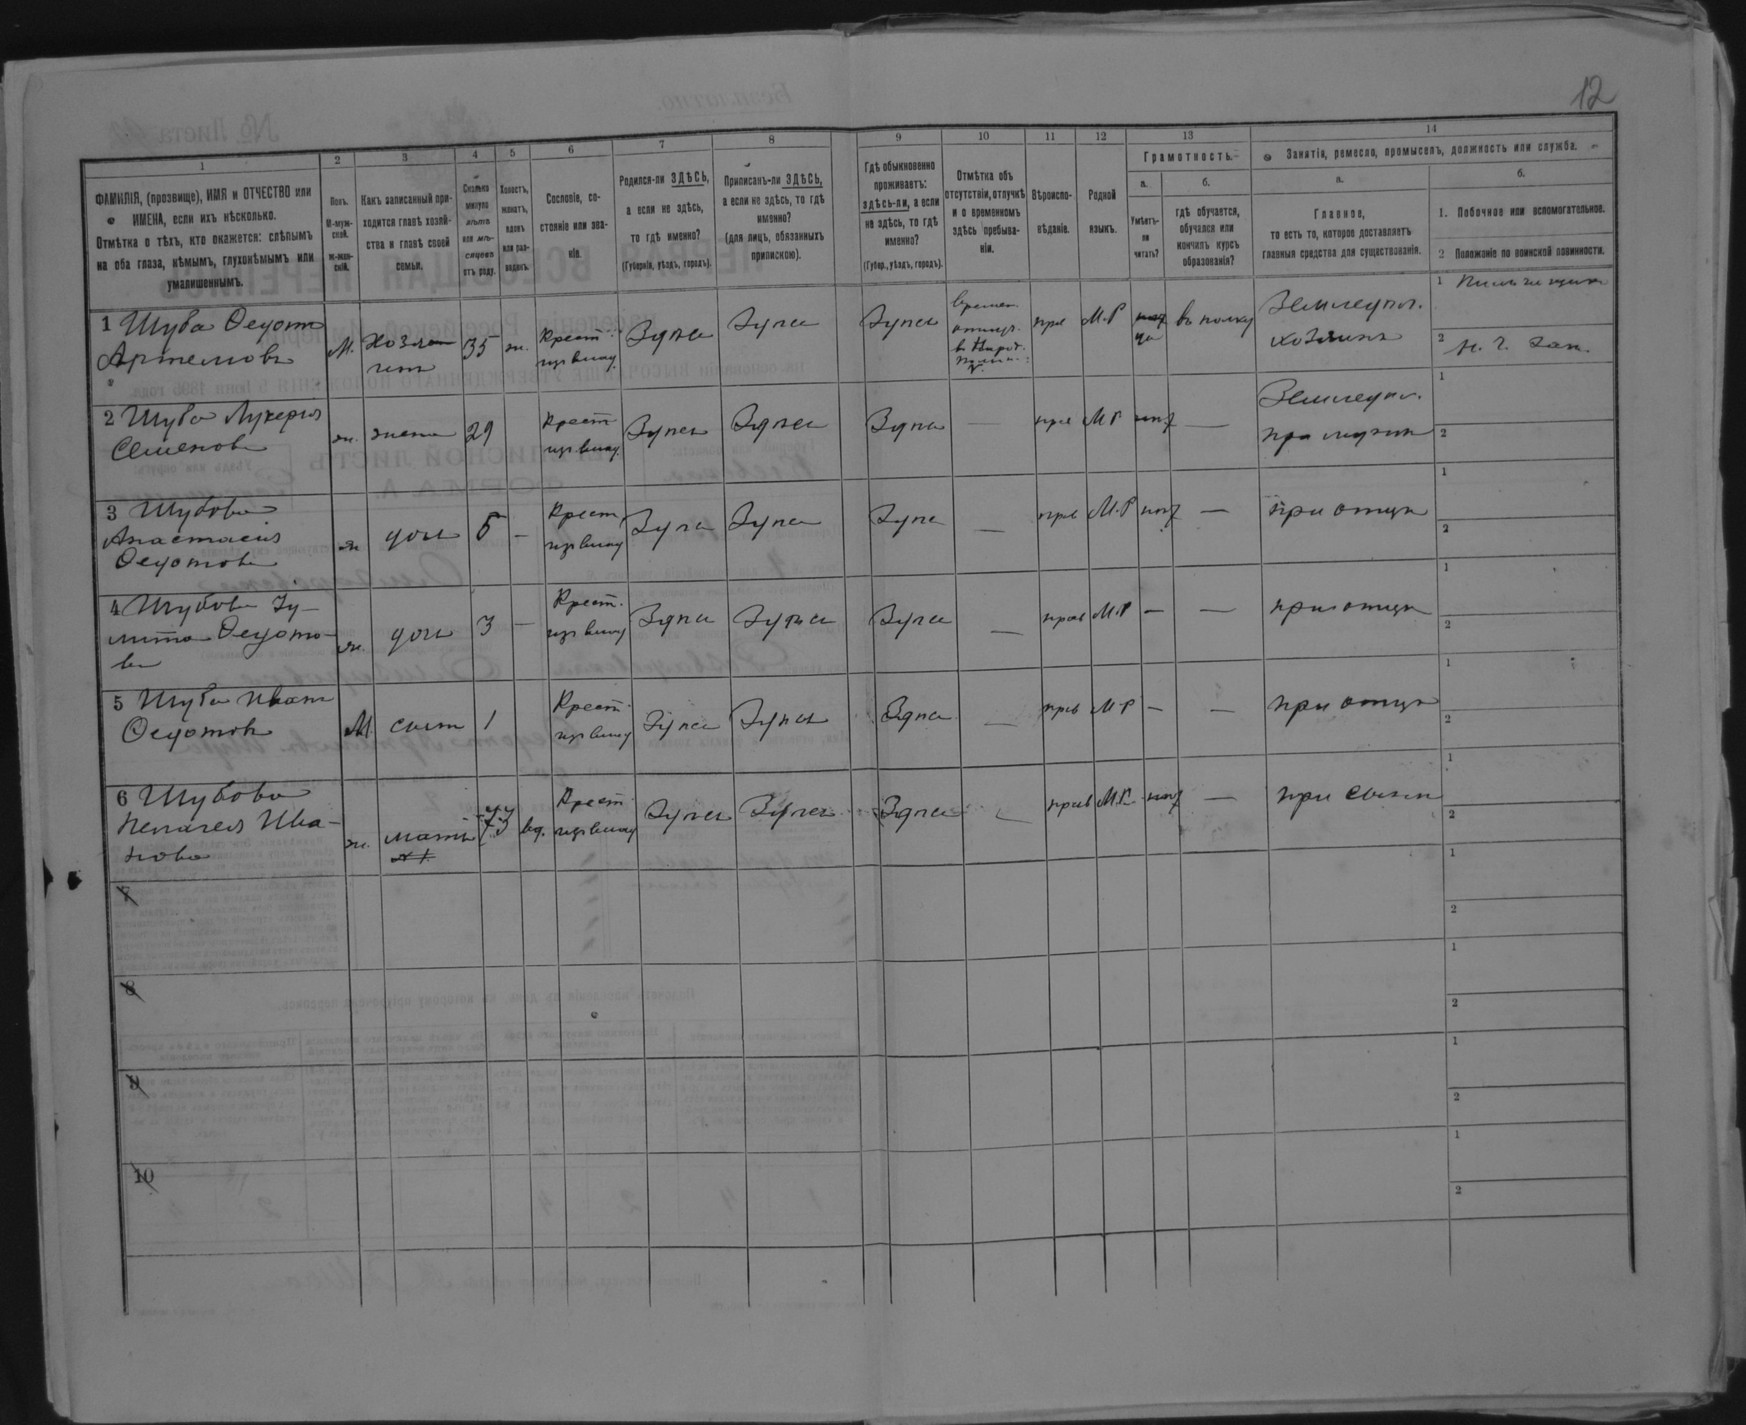 12
1
2
3
4
5
6
7
8
9
10
11
12
13
14
ФАМИЛІЯ, (прозвище), ИМЯ и ОТЧЕСТВО или
ИМЕНА, если ихъ нѣсколько.
Отмѣтка о тѣхъ, кто окажется: слѣпымъ
на оба глаза, нѣмымъ, глухонѣмымъ или
умалишеннымъ.
Полъ.
М-муж-
ской.
ж-жен-
скій.
Какъ записанный при-
ходится главѣ хозяй-
ства и главѣ своей
семьи.
Сколько
минуло
лѣтъ
или мѣ-
сяцевъ
отъ роду.
Холостъ,
женатъ,
вдовъ
или раз-
веденъ.
Сословіе, со-
стояніе или зва-
ніе.
Родился-ли ЗДѢСЬ,
а если не здѣсь,
то гдѣ именно?
(Губернія, уѣздъ, городъ).
Приписанъ-ли ЗДѢСЬ,
а если не здѣсь, то гдѣ
именно?
(для лицъ, обязанныхъ
припискою).
Гдѣ обыкновенно
проживаетъ:
здѣсь-ли, а если
не здѣсь, то гдѣ
именно?
(Губер., уѣздъ, городъ).
Отмѣтка объ
отсутствіи, отлучкѣ
и о временномъ
здѣсь пребыва-
ніи.
Вѣроиспо-
вѣданіе.
Родной
языкъ.
Грамотность.
а.
Умѣетъ-
ли
читать?
б.
гдѣ обучается,
обучался или
кончилъ курсъ
образованія?
Занятіе, ремесло, промыселъ, должность или служба.
а.
Главное,
то есть то, которое доставляетъ
главныя средства для существованія.
б.
1. Побочное или вспомогательное.
2 Положеніе по воинской повинности.
1 Шуба Ѳедотъ
Артемовъ
М.
Хозяинъ
35
ж.
Крест.
изъ влад.
Здѣсь
Здѣсь
Здѣсь
прав
М.Р
да
въ полку
Земледѣл.
хозяинъ
1
2
2 Шуба Лукерья
Семенова
ж.
жена
29
Крест
изъ влад.
Здѣсь
Здѣсь
Здѣсь
—
прав
М.Р
нѣт
—
Земледѣл.
при мужѣ
1
2
3 Шубова
Анастасія
Ѳедотова
ж
дочь
5
—
Крест
изъ влад
Здѣсь
Здѣсь
Здѣсь
—
прав
М.Р
нѣт
—
при отцѣ
1
2
4 Шубова Іу-
лита Ѳедото-
ва
ж.
дочь
3
—
Крест.
изъ влад
Здѣсь
Здѣсь
Здѣсь
—
прав
М.Р
—
—
при отцѣ
1
2
5 Шуба Иванъ
Ѳедотовъ
М
сынъ
1
Крест.
изъ влад
Здѣсь
Здѣсь
Здѣсь
—
прав
М.Р
—
—
при отцѣ
1
2
6 Шубова
Пелагея Ива-
нова
ж.
мать
73
вд.
Крест.
изъ влад
Здѣсь
Здѣсь
Здѣсь
—
прав
М.Р.
нѣт
—
при сынѣ
1
2
7
1
2
8
1
2
9
1
2
10
1
2